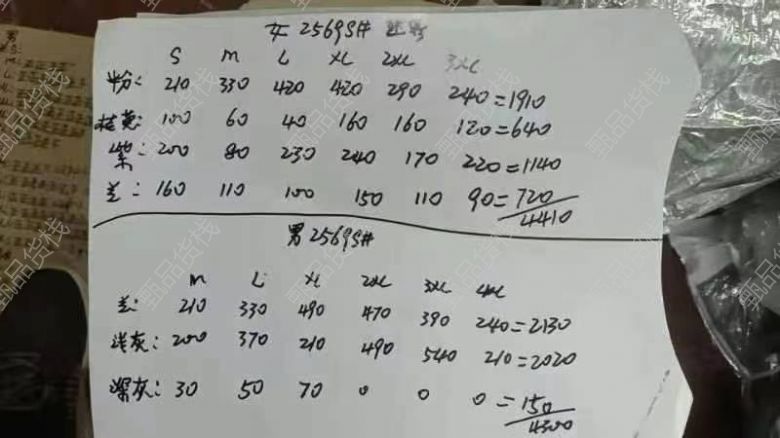 女 2569S#
S M L XL 2XL 3XL
粉: 210 330 420 420 290 240=1910
桔黄: 100 60 40 160 160 120=640
紫: 200 80 230 240 170 220=1140
兰: 160 110 100 150 110 90=720
4410
男2569S#
M L XL 2XL 3XL 4XL
兰: 210 330 490 470 390 240=2130
浅灰: 200 370 210 490 540 210=2020
深灰: 30 50 70 0 0 0=150
4300
甄品货栈